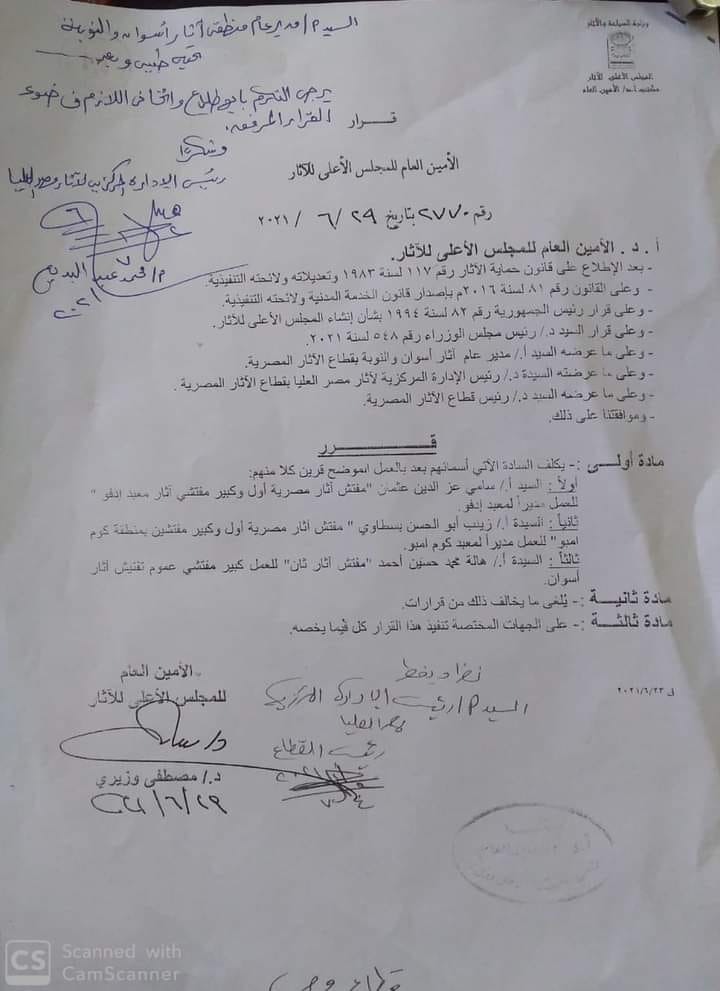 وزارة السياحة والآثار
المجلس الأعلى للآثار
مكتب أ.د/ الأمين العام
السيد م/ مدير عام منطقة آثار أسوان والنوبة
تحية طيبة وبعد
يرجى التكرم بالإطلاع واتخاذ اللازم فى ضوء
القرار المرفق.
وشكرا
رئيس الإدارة المركزية لآثار مصر العليا
م/ محمد عبد البديع
قـــرار
الأمين العام للمجلس الأعلى للآثار
رقم ٢٧٧٠ بتاريخ ٢٩ / ٦ / ٢٠٢١
أ . د . الأمين العام للمجلس الأعلى للآثار.
- بعد الإطلاع على قانون حماية الآثار رقم ١١٧ لسنة ١٩٨٣ وتعديلاته ولائحته التنفيذية.
- وعلى القانون رقم ٨١ لسنة ٢٠١٦م بإصدار قانون الخدمة المدنية ولائحته التنفيذية.
- وعلى قرار رئيس الجمهورية رقم ٨٢ لسنة ١٩٩٤ بشأن إنشاء المجلس الأعلى للآثار.
- وعلى قرار السيد د./ رئيس مجلس الوزراء رقم ٥٤٨ لسنة ٢٠٢١.
- وعلى ما عرضه السيد أ./ مدير عام آثار أسوان والنوبة بقطاع الآثار المصرية.
- وعلى ما عرضته السيدة د./ رئيس الإدارة المركزية لآثار مصر العليا بقطاع الآثار المصرية.
- وعلى ما عرضه السيد د./ رئيس قطاع الآثار المصرية.
- وموافقتنا على ذلك.
قــــــــرر
مادة أولـــى :- يكلف السادة الآتي أسمائهم بعد بالعمل الموضح قرين كلا منهم:
أولاً: السيد أ./ سامي عز الدين عثمان "مفتش آثار مصرية أول وكبير مفتشي آثار معبد إدفو "
للعمل مديراً لمعبد إدفو.
ثانياً: السيدة أ./ زينب أبو الحسن بسطاوي " مفتش آثار مصرية أول وكبير مفتشين بمنطقة كوم
امبو" للعمل مديراً لمعبد كوم امبو.
ثالثاً: السيدة أ./ هالة محمد حسنين أحمد "مفتش آثار ثان" للعمل كبير مفتشي عموم تفتيش آثار
أسوان.
مادة ثانيـــة :- يُلغى ما يخالف ذلك من قرارات.
مادة ثالثـــة :- على الجهات المختصة تنفيذ هذا القرار كل فيما يخصه.
ف ٢٠٢١/٦/٢٣
السيد م/ رئيس الإدارة المركزية
مصر العليا
رئيس القطاع
الأمين العام
للمجلس الأعلى للآثار
د./ مصطفى وزيري
٢٠٢١/٦/٢٩
CS
Scanned with
CamScanner